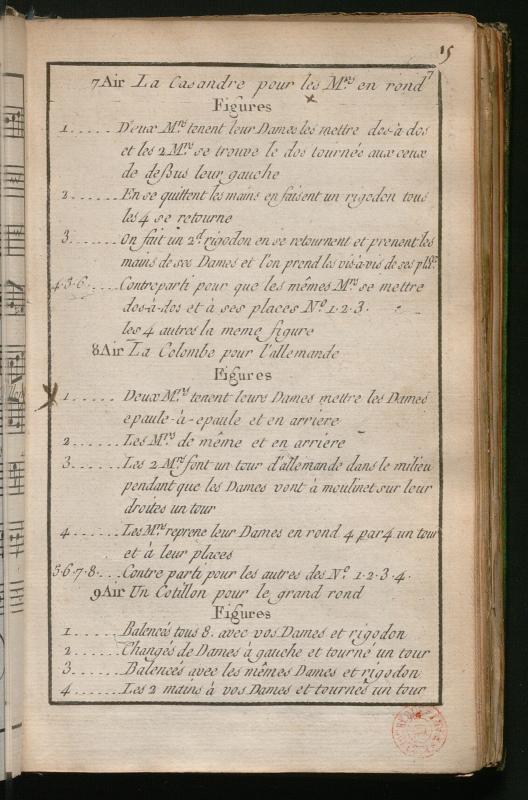 15
7 Air La Casandre pour les Mrs en rond 7
Figures
1..... Deux Mrs tenent leur Dames les mettre dos-à dos
et les 2 Mrs se trouve le dos tournée aux ceux
de deßus leur gauche
2...... En se quittent les mains en faisent un rigodon tous
les 4 se retourne
3...... On fait un 2d rigodon en se retournent et prenent les
mains de ses Dames et l'on prend les vis à vis de ses
4.5.6..... Contreparti pour que les mêmes Mrs se mettre
dos-à-dos et à ses places No 1.2.3.
les 4 autres la meme figure
8 Air La Colombe pour l'allemande
Figures
1..... Deux Mrs tenent leurs Dames mettre les Dames
epaule-à-epaule et en arriere
2...... Les Mrs de même et en arriere
3...... Les 2 Mrs font un tour d'allemande dans le milieu
pendant que les Dames vont à moulinet sur leur
droites un tour
4...... Les Mrs reprene leur Dames en rond 4 par 4 un tour
et à leur places
5.6.7.8.... Contre parti pour les autres des No 1.2.3.4.
9 Air Un Cotillon pour le grand rond
Figures
1...... Balencés tous 8. avec vos Dames et rigodon
2...... Changés de Dames à gauche et tourné un tour
3...... Balencés avec les mêmes Dames et rigodon
4...... Les 2 mains à vos Dames et tournés un tour